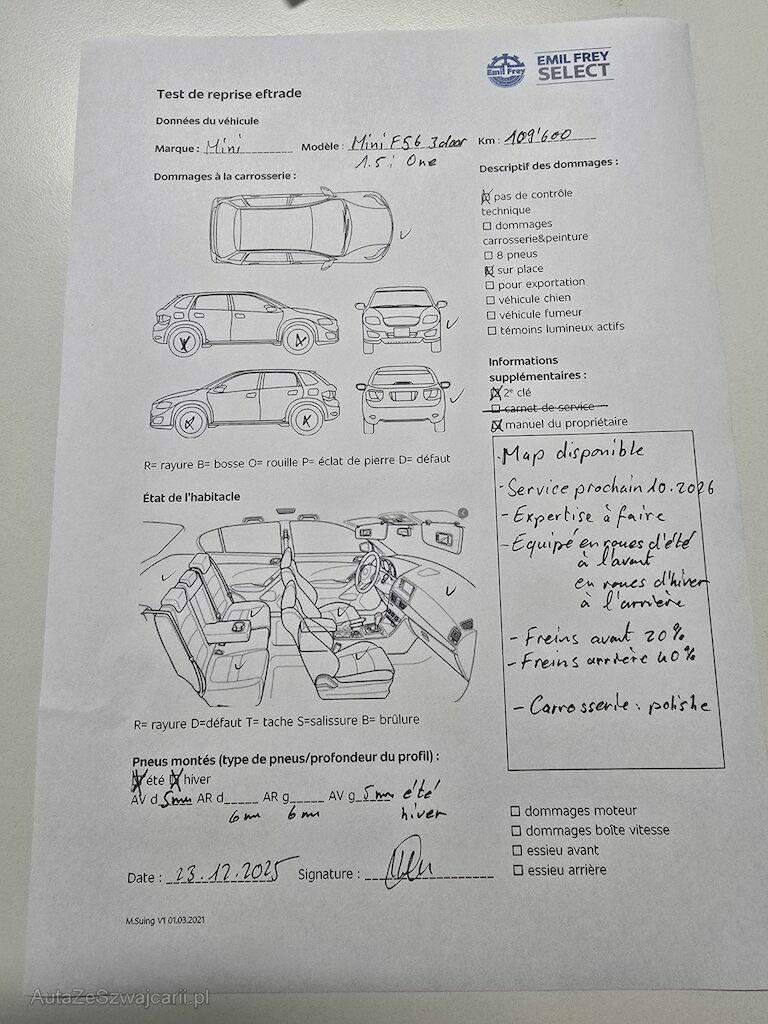 Emil Frey
EMIL FREY
SELECT
Test de reprise eftrade
Données du véhicule
Marque : Mini Modèle : Mini F56 3door Km : 109'600
1.5i One
Dommages à la carrosserie :
Descriptif des dommages :
pas de contrôle
technique
dommages
carrosserie&peinture
8 pneus
sur place
pour exportation
véhicule chien
véhicule fumeur
témoins lumineux actifs
Informations
supplémentaires :
2e clé
carnet de service
manuel du propriétaire
R= rayure B= bosse O= rouille P= éclat de pierre D= défaut
- Map disponible
- Service prochain 10.2026
- Expertise à faire
- Equipé en roues d'été
à l'avant
en roues d'hiver
à l'arrière
- Freins avant 20%
- Freins arrière 40%
- Carrosserie : polishe
État de l'habitacle
R= rayure D=défaut T= tache S=salissure B= brûlure
Pneus montés (type de pneus/profondeur du profil) :
été hiver
AV d 5mm AR d AR g AV g 5mm été
6mm 6mm hiver
dommages moteur
dommages boîte vitesse
essieu avant
essieu arrière
Date : 23.12.2025 Signature :
M.Suing V1 01.03.2021
AutaZeSzwajcarii.pl